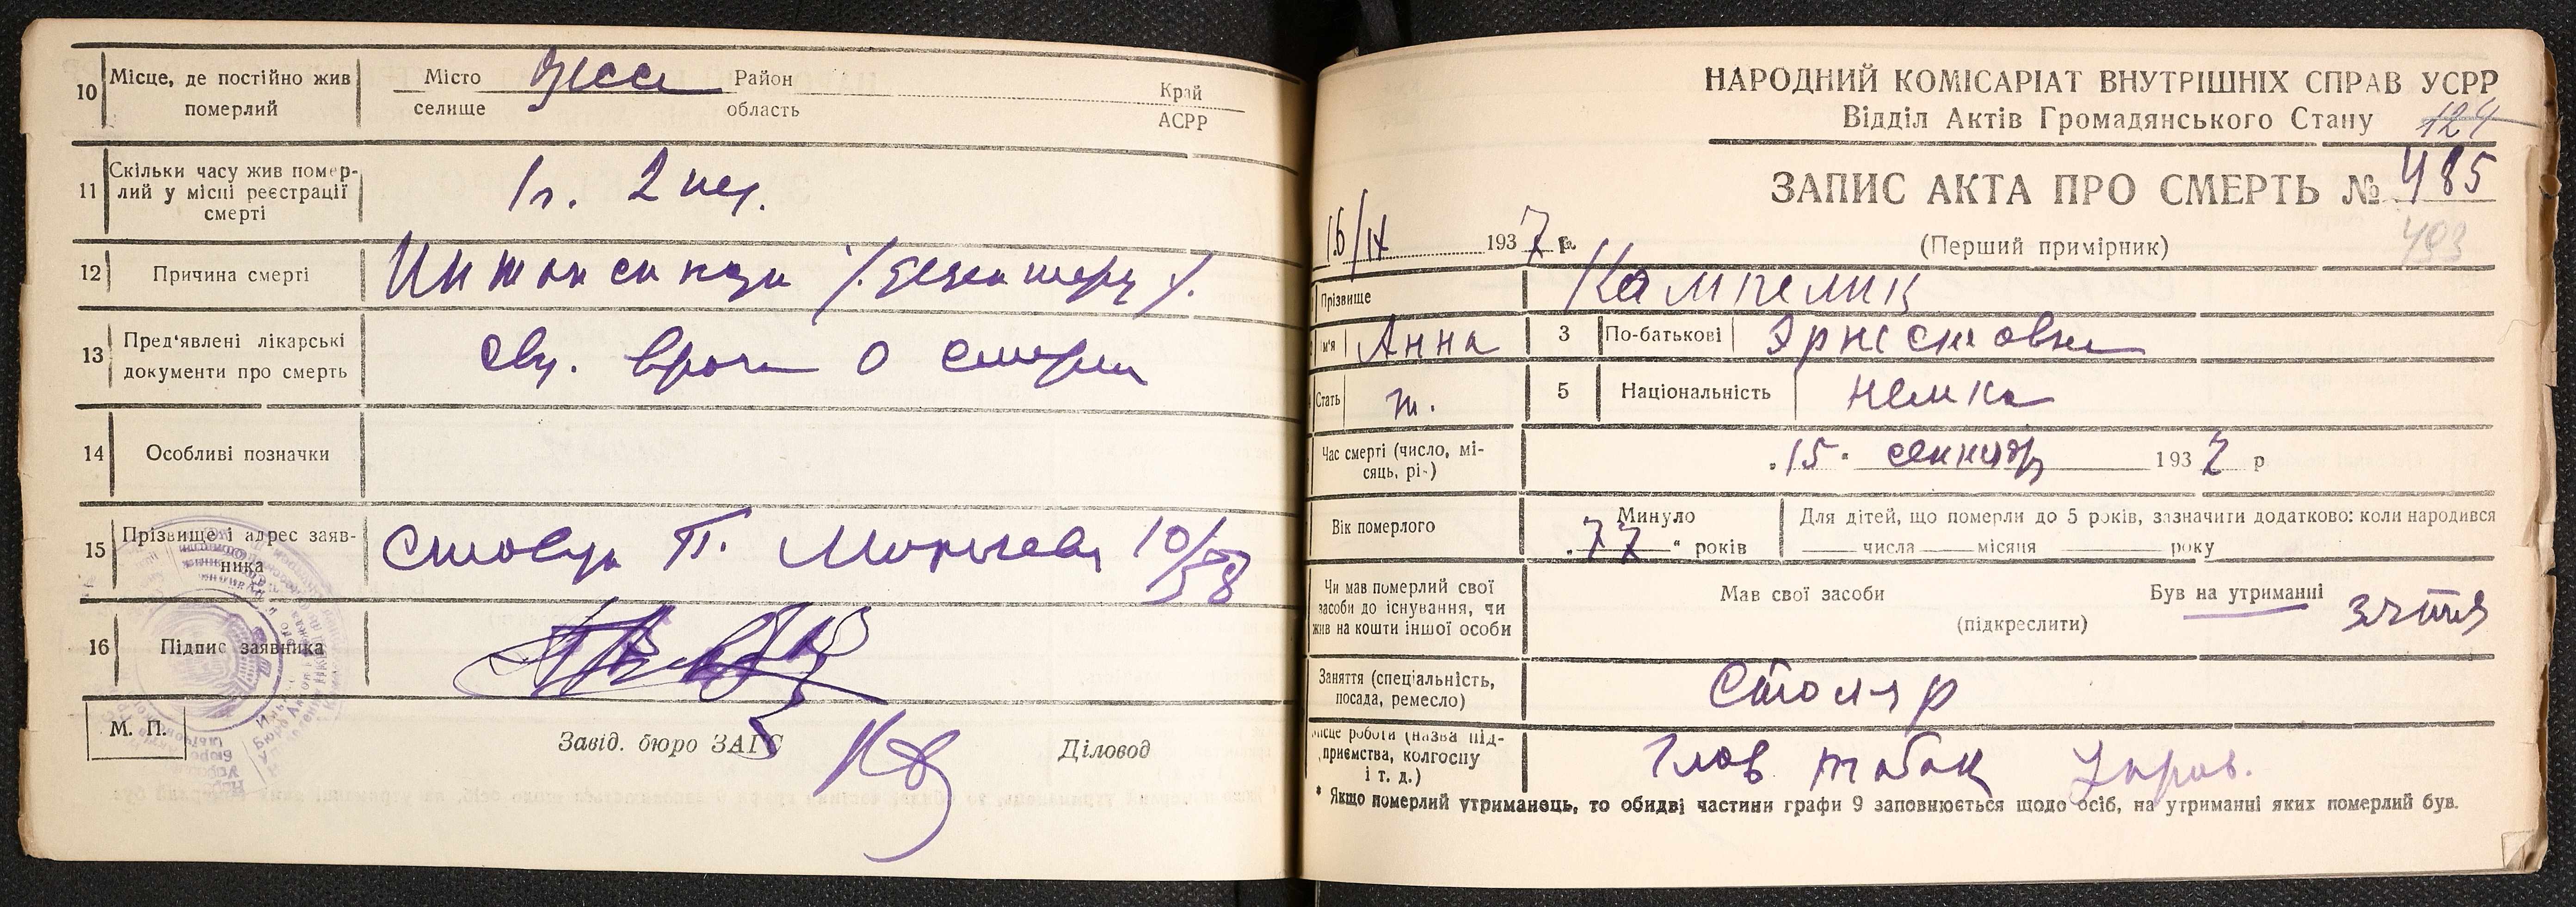 10 Місце, де постійно жив померлий
Місто селище Район область Край АСРР
11 Скільки часу жив помер-
лий у місці реєстрації
смерті
1 г. 2 нед.
12 Причина смерті
Интоксикация
13 Пред'явлені лікарські
документи про смерть
врача о смерти
14 Особливі позначки
15 Прізвище і адрес заяв-
ника
П. 10/58
16 Підпис заявника
М. П.
Завід. бюро ЗАГС Діловод
НАРОДНИЙ КОМІСАРІАТ ВНУТРІШНІХ СПРАВ УСРР
Відділ Актів Громадянського Стану 124
ЗАПИС АКТА ПРО СМЕРТЬ № 485
16/IX 1937 р. (Перший примірник) 493
Прізвище
ім'я Анна 3 По-батькові Эрнестовна
Стать ж. 5 Національність немка
Час смерті (число, мі-
сяць, рі-)
"15" сентября 1937 р
Вік померлого
Минуло "77" років
Для дітей, що померли до 5 років, зазначити додатково: коли народився
числа місяця року
Чи мав померлий свої
засоби до існування, чи
жив на кошти іншої особи
Мав свої засоби Був на утриманні зятя
(підкреслити)
Заняття (спеціальність,
посада, ремесло)
Столяр
місце роботи (назва під-
приємства, колгоспу
і т. д.)
Глав табак
* Якщо померлий утриманець, то обидві частини графи 9 заповнюється щодо осіб, на утриманні яких померлий був.